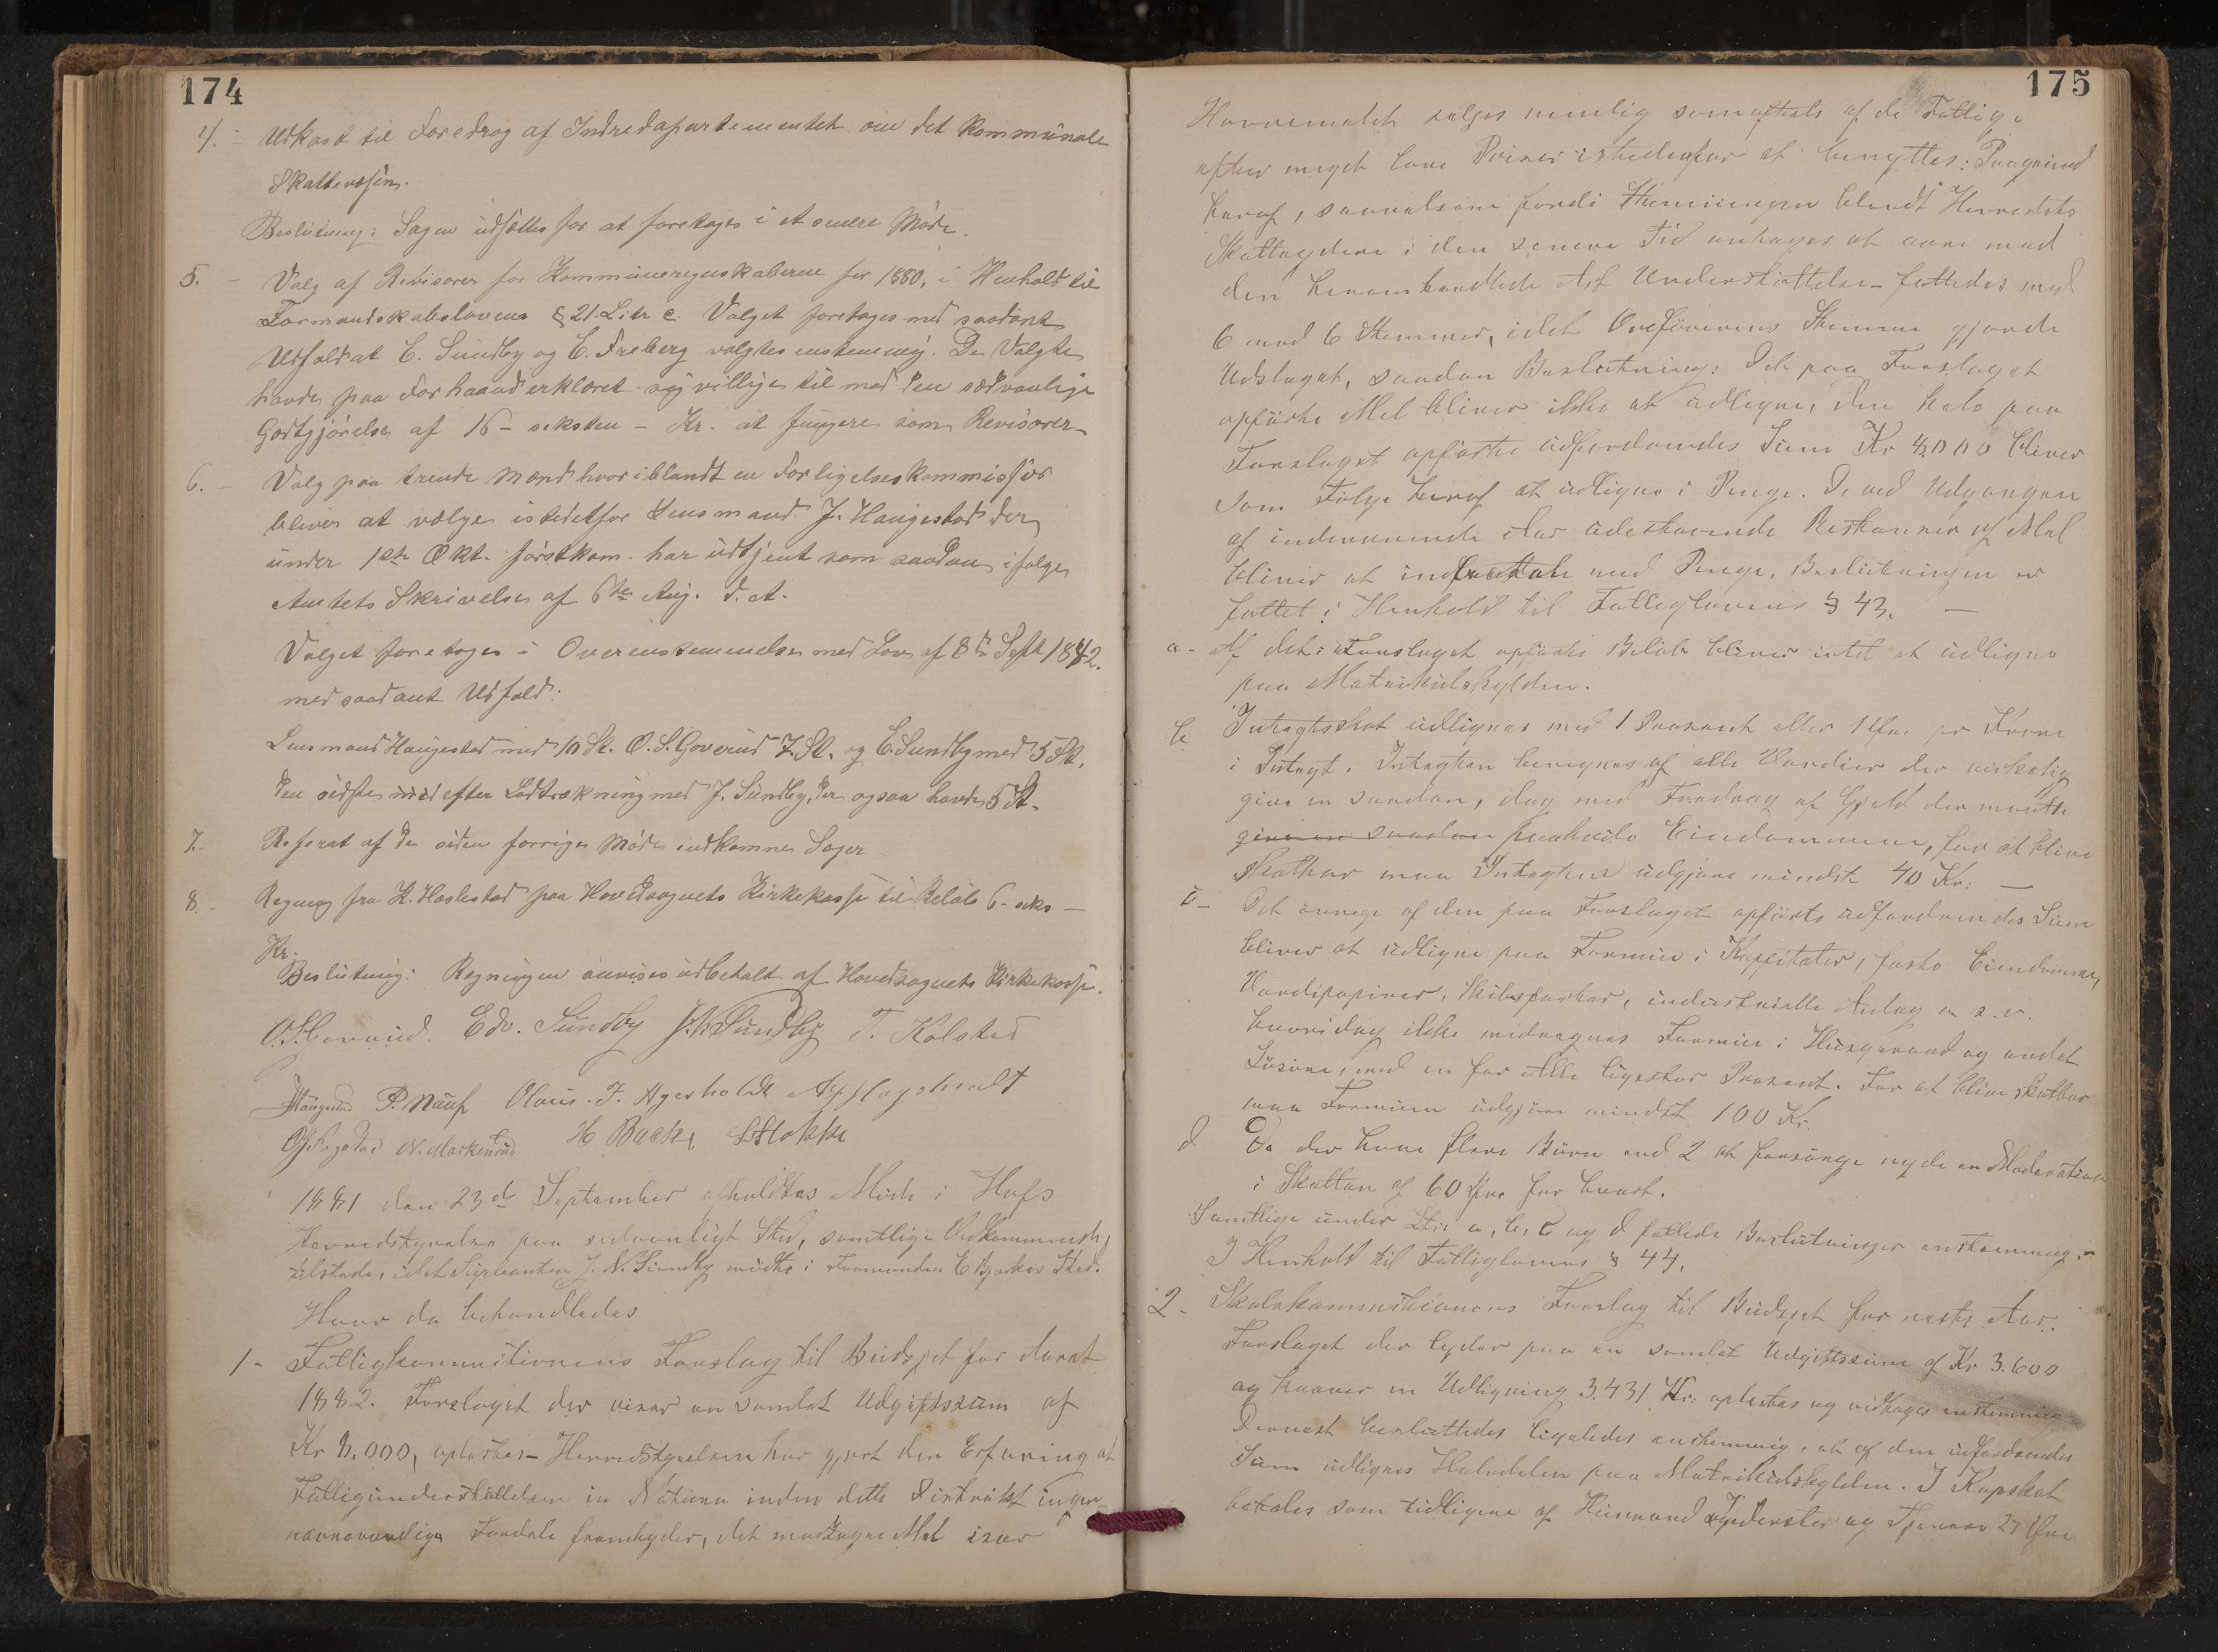 174
4. - Udkast til Foredrag af Indredepartementet om det kommunale
Skattevæsen.
Beslutning: Sagen udsættes for at foretages i et senere Møde.
5. - Valg af Revisorer for Kommuneregnskaberne for 1880, i Henhold til
Formandskabslovens § 21. Litr c. Valget foretages med saadant
Udfald at C. Sundby og E. Freberg valgtes enstemmig. De Valgte
havde paa Forhaand erklæret sig villige til mod den sædvanlige
Godtgjörelse af 16 - seksten - Kr. at fungere som Revisorer.
6. - Valg paa trende Mænd hvoriblandt en Forligelseskommissær
bliver at vælge istedetfor Lensmand J. Haugestad der
under 1ste Okt. förstkom. har udtjent som saadan, ifølge
Amtets Skrivelse af 6te Aug. d. A.
Valget foretages i Overensstemmelse med Lov af 8de Sept 1842.
med saadant Udfald:
Lensmand Haugestad med 10 St. O. S. Goverud 7 St. og E. Sundby med 5 St.
den sidste efter Lodtrækning med J. Sundby, der ogsaa havde 5 St.
7. - Referat af de siden forrige Möde indkomne Sager
8. - Regning fra K. Haslestad paa Hovedsognets Kirkekasse til Belöb 6 - seks -
Kr.
Beslutning: Regningen anvises udbetalt af Hovedsognets Kirkekasse.
O. S. Goverud. Edv. Sundby J. N. Sundby T. Kolstad
Haugestad P. Nauf Olaus. F. Agerholdt
N. Markerud H Backe Stokke
1881 den 23de September afholdtes Möde i Hofs
Herredstyrelse paa sedvanligt Sted, samtlige Vedkommende
tilstede, idet Suppleanten J. N. Sundby mödte i Formanden E Bjerkes Sted.
Hvor da behandledes
1 - Fattigkommitionens Forslag til Budsjet for Aaret
1882. Forslaget der viser en samlet Udgiftssum af
Kr 8.000, oplæstes - Herredstyrelsen har gjort den Erfaring at
Fattigunderstöttelsen in Natura inden dette Distrikt ingen
nævneværdige Fordele frembyder, det modtagne Mel især
175
Havremelet sælges nemlig som oftest af de Fattige
efter meget lave Priser istedenfor at benyttes: Paagrund
heraf, saavelsom fordi Stemningen blandt Herredets
Skatteydere i den senere Tid antages at være mod
den heromhandlede Art Understöttelse - fattedes med
6 mod 6 Stemmer, idet Ordförerens Stemme gjorde
Udslaget, saadan Beslutning: Det paa Forslaget
opførte Mel bliver ikke at udligne, den hele paa
Forslaget opførte udfordrendes Sum Kr 8.000 bliver
som Følge heraf at udligne i Penge. De ved Udgangen
af indeværende Aar udestaaende Restanser af Mel
bliver at indbetale med Penge. Beslutningen er
fattet i Henhold til Fattiglovens § 43. -
a - Af det i Forslaget opførte Belöb bliver intet at udligne
paa Matrikulskylden.
b Indtægtsskat udlignes med 1 Prosent eller 1 Øre pr Krone
i Indtægt. Indtægten beregnes af alle Værdier der virkelig
give en saadan, dog med Fradrag af Gjeld der maatte
give en saadan paahvile Eiendommene, for at blive
skatbar maa Indtægten udgjøre mindst 40 Kr. -
c - Det övrige af den paa Forslaget opførte udfordrendes Sum
bliver at udligne paa Formue i Kapitaler, faste Eiendomme,
Værdipapirer, Skibsparter, industrielle Anlæg m. v.
hvorved dog ikke medregnes Formue i Husgeraad og andet
Lösøre, med en for Alle ligestor Prosent. For at blive skatbar
maa Formuen udgjøre mindst 100 Kr.
d De der have flere Börn end 2 at forsörge nyde en Moderation
i Skatten af 60 Øre for hvert.
Samtlige under Litr. a, b, c og d fattede Beslutninger enstemmig. -
I Henhold til Fattiglovens § 44.
2 - Skolekommitionens Forslag til Budsjet for næste Aar.
Forslaget der lyder paa en samlet Udgiftssum af Kr 3.600
og kræver en Udligning 3.431 Kr. oplæstes og vedtoges enstemmig
Dernæst besluttedes ligeledes enstemmig, at af den udfordrendes
Sum udlignes Halvdelen paa Matrikulskylden. I Kopskat
betales som tidligere af Husmænd Inderster og Tjenere 27 Øre